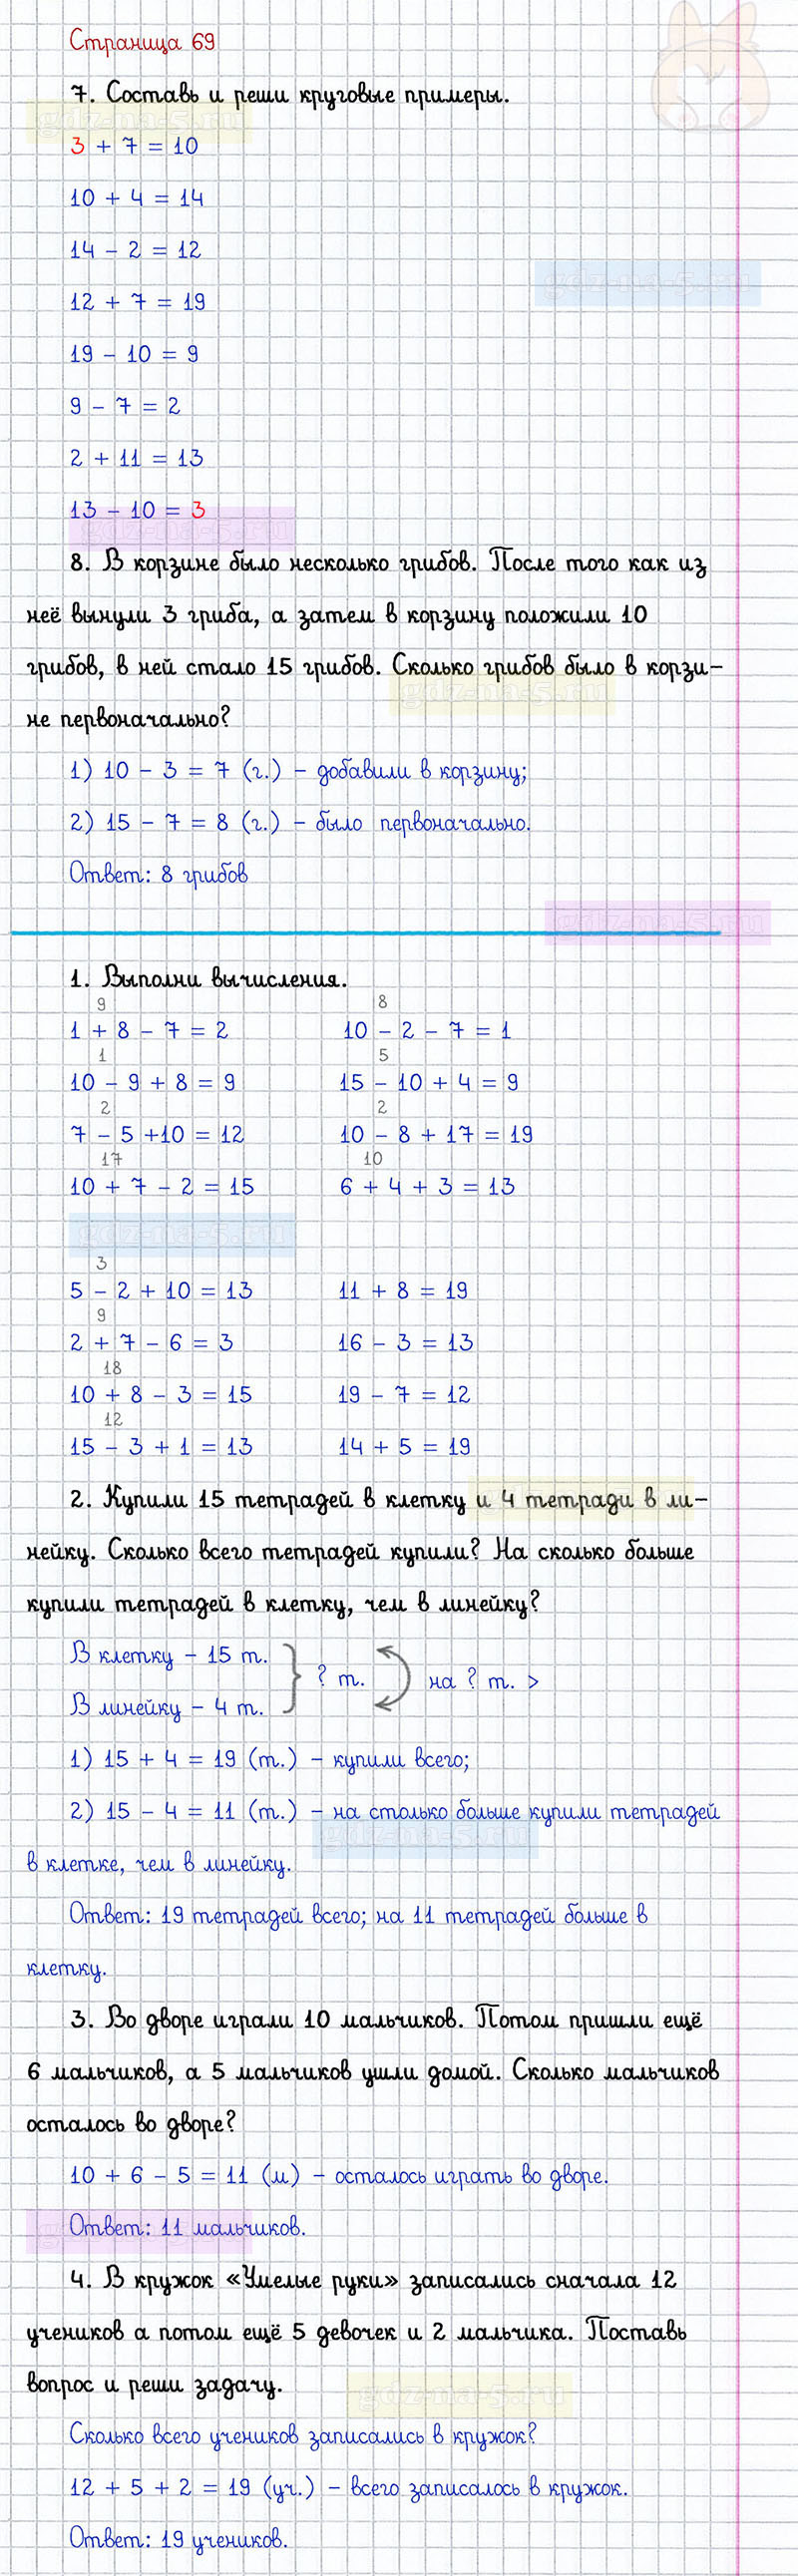 Страница 69
7. Составь и реши круговые примеры.
gdz-na-5.ru
3 + 7 = 10
10 + 4 = 14
14 - 2 = 12
gdz-na-5.ru
12 + 7 = 19
19 - 10 = 9
9 - 7 = 2
2 + 11 = 13
13 - 10 = 3
gdz-na-5.ru
8. В корзине было несколько грибов. После того как из
неё вынули 3 гриба, а затем в корзину положили 10
грибов, в ней стало 15 грибов. Сколько грибов было в корзи-
gdz-na-5.ru
не первоначально?
1) 10 - 3 = 7 (г.) - добавили в корзину;
2) 15 - 7 = 8 (г.) - было первоначально.
Ответ: 8 грибов
gdz-na-5.ru
1. Выполни вычисления.
9 8
1 + 8 - 7 = 2 10 - 2 - 7 = 1
1 5
10 - 9 + 8 = 9 15 - 10 + 4 = 9
2 2
7 - 5 +10 = 12 10 - 8 + 17 = 19
17 10
10 + 7 - 2 = 15 6 + 4 + 3 = 13
gdz-na-5.ru
3
5 - 2 + 10 = 13 11 + 8 = 19
9
2 + 7 - 6 = 3 16 - 3 = 13
18
10 + 8 - 3 = 15 19 - 7 = 12
12
15 - 3 + 1 = 13 14 + 5 = 19
2. Купили 15 тетрадей в клетку и 4 тетради в ли-
нейку. Сколько всего тетрадей купили? На сколько больше
купили тетрадей в клетку, чем в линейку?
В клетку - 15 т.
? т. на ? т. >
В линейку - 4 т.
1) 15 + 4 = 19 (т.) - купили всего;
2) 15 - 4 = 11 (т.) - на столько больше купили тетрадей
gdz-na-5.ru
в клетке, чем в линейку.
Ответ: 19 тетрадей всего; на 11 тетрадей больше в
клетку.
3. Во дворе играли 10 мальчиков. Потом пришли ещё
6 мальчиков, а 5 мальчиков ушли домой. Сколько мальчиков
осталось во дворе?
10 + 6 - 5 = 11 (м) - осталось играть во дворе.
Ответ: 11 мальчиков.
4. В кружок «Умелые руки» записались сначала 12
учеников а потом ещё 5 девочек и 2 мальчика. Поставь
вопрос и реши задачу.
gdz-na-5.ru
Сколько всего учеников записались в кружок?
12 + 5 + 2 = 19 (уч.) - всего записалось в кружок.
Ответ: 19 учеников.